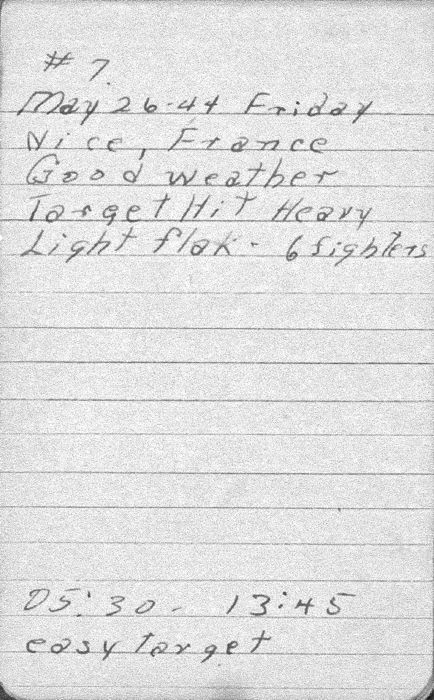 # 7
May 26-44 Friday
Nice, France
Good weather
Target Hit Heavy
Light flak - 6 fighters
05:30 - 13:45
easy target